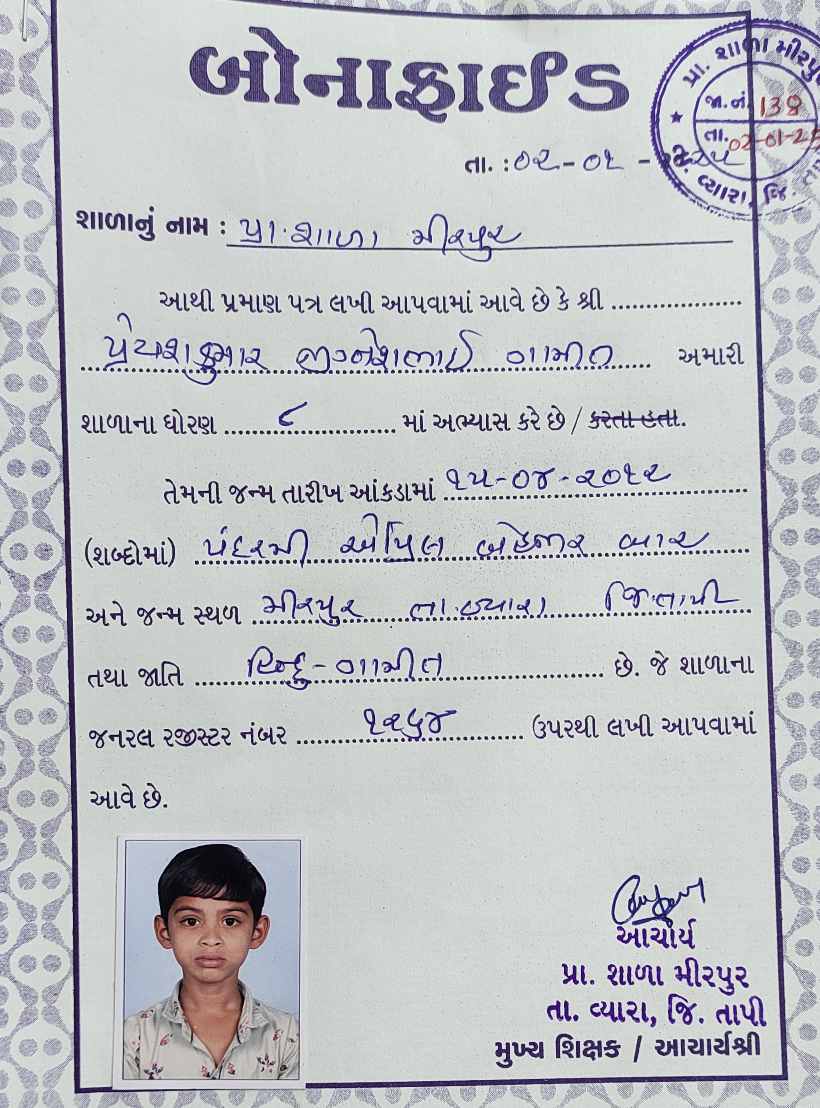 બોનાફાઈડ
પ્રા. શાળા મીરપુર
જા.નં. 138
તા. 02-01-25
વ્યારા, જિ. તા
તા. : ૦૨-૦૧-૨૦૨૫
શાળાનું નામ : પ્રા. શાળા મીરપુર
આથી પ્રમાણ પત્ર લખી આપવામાં આવે છે કે શ્રી ....................
પ્રેયશકુમાર જીજ્ઞેશભાઈ ગામીત અમારી
શાળાના ધોરણ ૮ માં અભ્યાસ કરે છે / કરતા હતા.
તેમની જન્મ તારીખ આંકડામાં ૧૫-૦૪-૨૦૧૨
(શબ્દોમાં) પંદરમી એપ્રિલ બેહજાર બાર
અને જન્મ સ્થળ મીરપુર તા. વ્યારા જિ. તાપી
તથા જાતિ હિન્દુ - ગામીત છે. જે શાળાના
જનરલ રજીસ્ટર નંબર ૧૨૬૪ ઉપરથી લખી આપવામાં
આવે છે.
આચાર્ય
પ્રા. શાળા મીરપુર
તા. વ્યારા, જિ. તાપી
મુખ્ય શિક્ષક / આચાર્યશ્રી